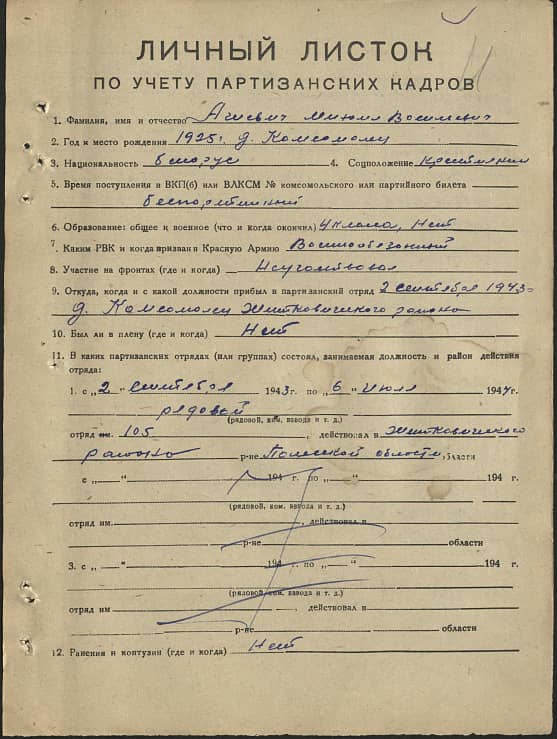 ЛИЧНЫЙ ЛИСТОК
ПО УЧЕТУ ПАРТИЗАНСКИХ КАДРОВ
1. Фамилия, имя и отчество Агиевич Михаил Васильевич
2. Год и место рождения 1925 г. д. Комсомолец
3. Национальность беларус 4. Соцположение Крестьянин
5. Время поступления в ВКП(б) или ВЛКСМ № комсомольского или партийного билета
беспартийный
6. Образование: общее и военное (что и когда окончил) 4 класса, Нет
7. Каким РВК и когда призван в Красную Армию Военнообязанный
8. Участие на фронтах (где и когда) Неучаствовал
9. Откуда, когда и с какой должности прибыл в партизанский отряд 2 сентября 1943
д. Комсомолец Житковичского района
10. Был ли в плену (где и когда) Нет
11. В каких партизанских отрядах (или группах) состоял, занимаемая должность и район действия
отряда:
1. с „2" сентября 1943 г. по „6" июля 1944 г.
рядовой
(рядовой, ком. взвода и т. д.)
отряд им. 105, действовал в Житковичского
района р-не Полесской области области
с „ " 194 г. по „ " 194 г.
(рядовой, ком. взвода и т. д.)
отряд им. , действовал в
р-не области
3. с „ " 194 г. по „ " 194 г.
(рядовой, ком. взвода и т. д.)
отряд им. , действовал в
р-не области
12. Ранения и контузии (где и когда) Нет